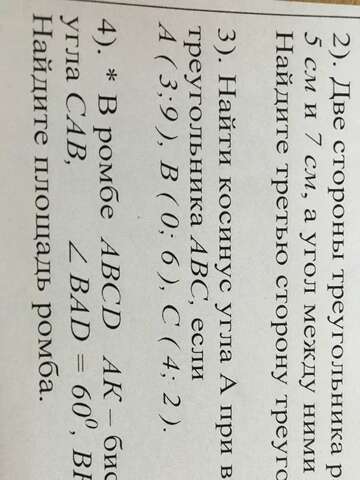 2). Две стороны треугольника
5 см и 7 см, а угол между ними
Найдите третью сторону
3). Найти косинус угла A при
треугольника ABC, если
A ( 3;9 ), B ( 0; 6 ), C ( 4; 2 ).
4). * В ромбе ABCD AK –
угла CAB, ∠BAD = 60⁰,
Найдите площадь ромба.